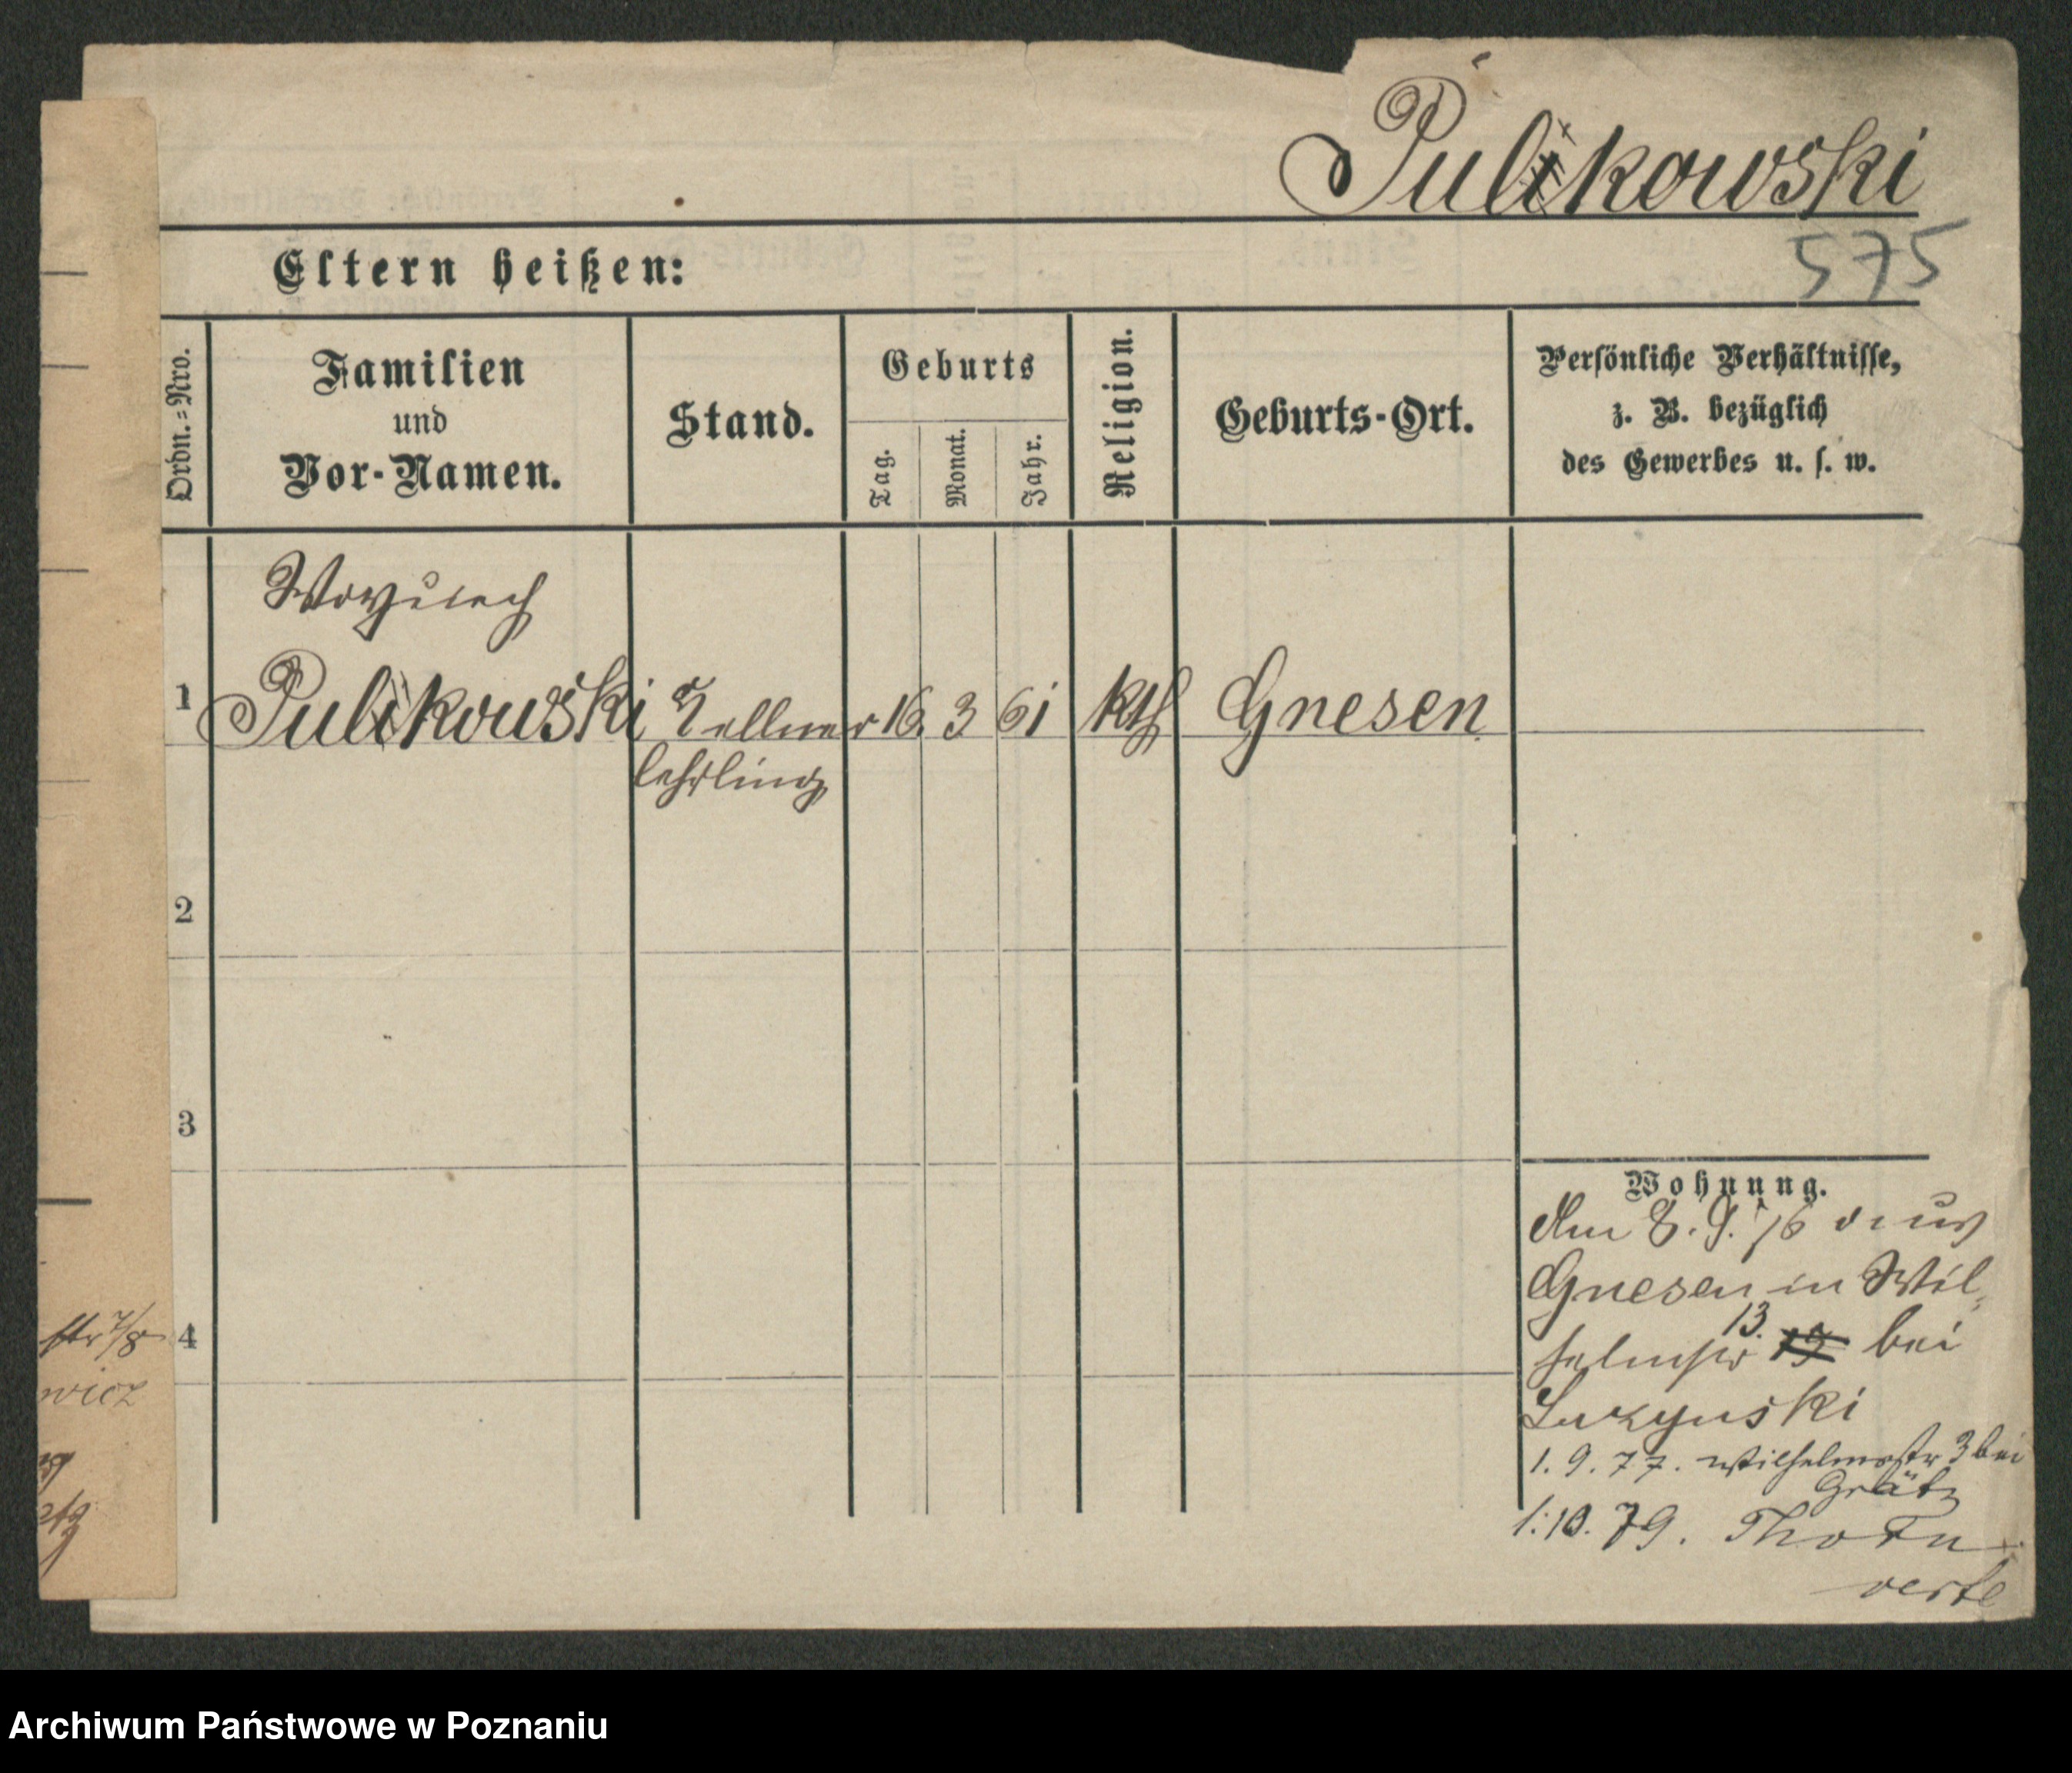 Pulkowski
575
Eltern heißen:
Ordn.=Nro.
Familien
und
Vor-Namen.
Stand.
Geburts
Tag.
Monat.
Jahr.
Religion.
Geburts-Ort.
Persönliche Verhältnisse,
z. B. bezüglich
des Gewerbes u. s. w.
1
Woyciech
Pulkowski
Kellner
lehrling
16.
3
61
kth
Gnesen
2
3
4
Wohnung.
Am 8. 9. 76 aus
Gnesen in Wil-
helmstr 13. bei
1. 9. 77. Wilhelmstr 3 bei
Grätz
1. 10. 79. Thorn
verte
str 7/8
wicz
Archiwum Państwowe w Poznaniu